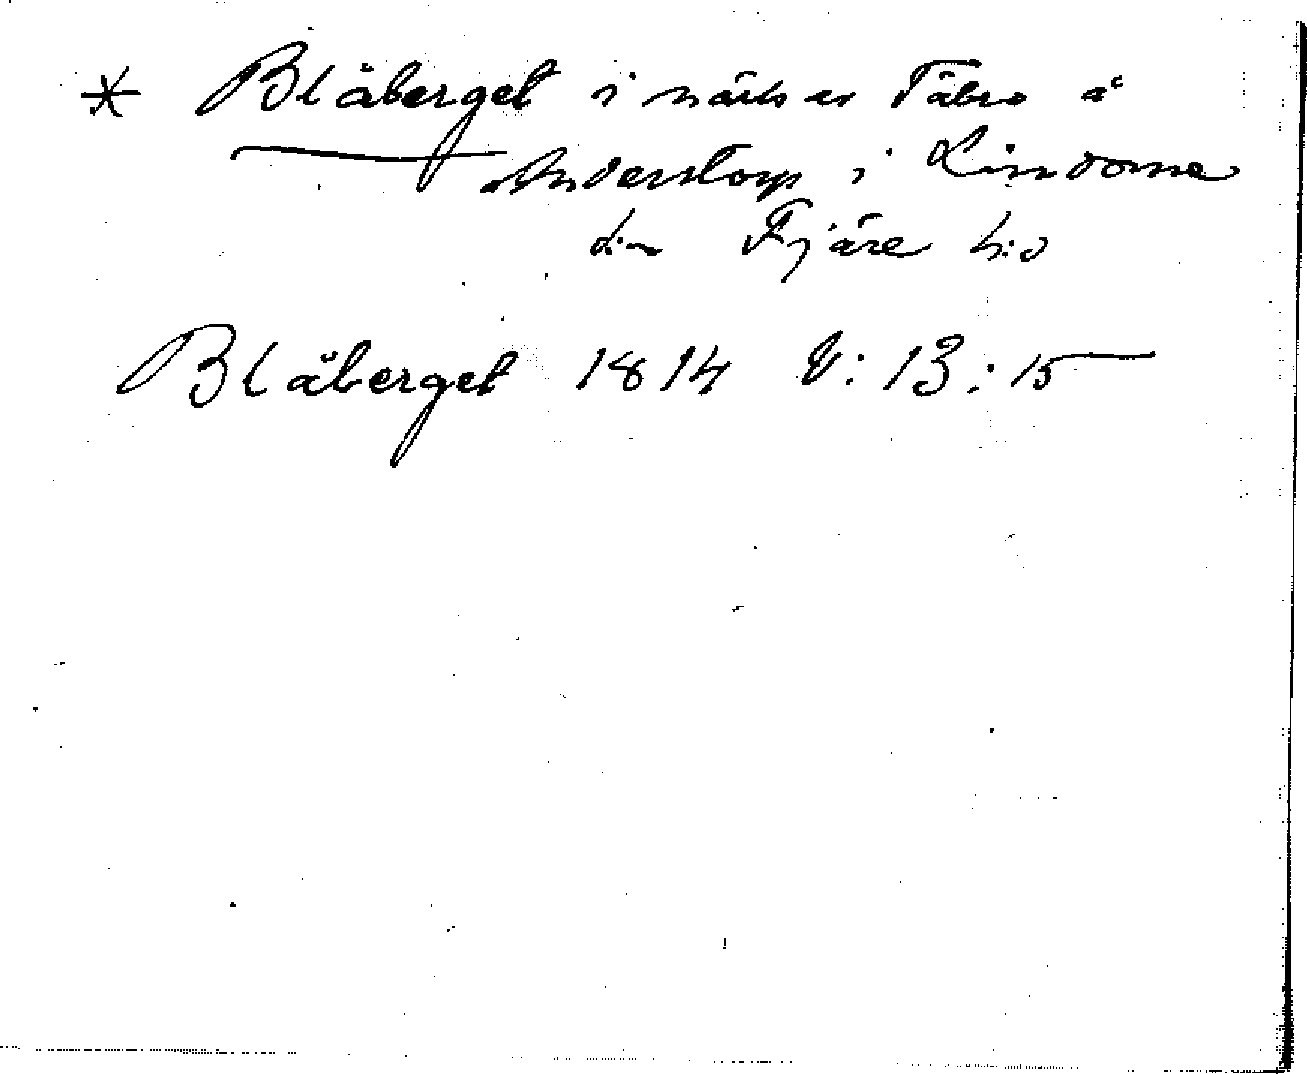 * Blåberget i närh av Täbro å
Anderstorp i Lindome
sn Fjäre hd
Blåberget 1814 V: 13: 15